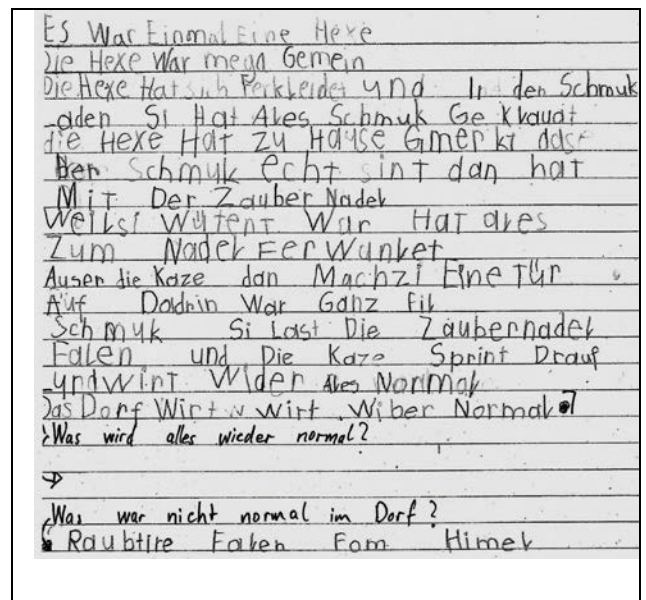 ES War Einmal Eine Hexe
Die Hexe War mega Gemein
Die Hexe Hat sich Ferkleidet und In den Schmuk
laden Si Hat Ales Schmuk Ge Klaudt
die Hexe Hat zu Hause Gmerkt dass
Der Schmuk echt sint dan hat
Mit Der Zauber Nadel
Weilsi Wütent War Hat ales
Zum Nadel Fer Wanlet
Auser die Kaze dan Machzi Eine Tür
Auf Dadrin War Ganz Fil
Schmuk Si Last Die Zaubernadel
Falen und Die Kaze Sprint Drauf
undwirt Wider Ales Normal
Das Dorf Wirt Wirt Wiber Normal
Was wird alles wieder normal?
→
Was war nicht normal im Dorf?
Raubtire Falen Fom Himel